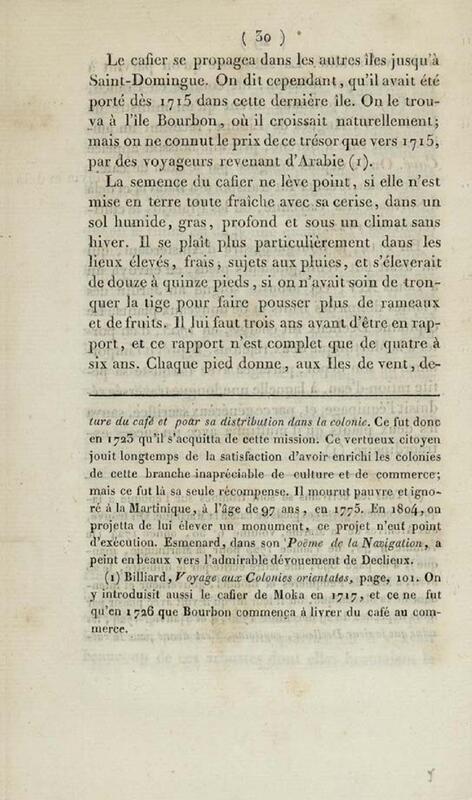 ( 30 )
Le cafier se propagea dans les autres îles jusqu'à
Saint-Domingue. On dit cependant, qu'il avait été
porté dès 1715 dans cette dernière île. On le trou-
va à l'île Bourbon, où il croissait naturellement;
mais on ne connut le prix de ce trésor que vers 1715,
par des voyageurs revenant d'Arabie (1).
La semence du cafier ne lève point, si elle n'est
mise en terre toute fraîche avec sa cerise, dans un
sol humide, gras, profond et sous un climat sans
hiver. Il se plaît plus particulièrement dans les
lieux élevés, frais, sujets aux pluies, et s'éleverait
de douze à quinze pieds, si on n'avait soin de tron-
quer la tige pour faire pousser plus de rameaux
et de fruits. Il lui faut trois ans avant d'être en rap-
port, et ce rapport n'est complet que de quatre à
six ans. Chaque pied donne, aux Iles de vent, de-
ture du café et pour sa distribution dans la colonie. Ce fut donc
en 1723 qu'il s'acquitta de cette mission. Ce vertueux citoyen
jouit longtemps de la satisfaction d'avoir enrichi les colonies
de cette branche inapréciable de culture et de commerce;
mais ce fut là sa seule récompense. Il mourut pauvre et igno-
ré à la Martinique, à l'âge de 97 ans, en 1775. En 1804, on
projetta de lui élever un monument, ce projet n'eut point
d'exécution. Esmenard, dans son Poème de la Navigation, a
peint en beaux vers l'admirable dévouement de Declieux.
(1) Billiard, Voyage aux Colonies orientales, page, 101. On
y introduisit aussi le cafier de Moka en 1717, et ce ne fut
qu'en 1726 que Bourbon commença à livrer du café au com-
merce.